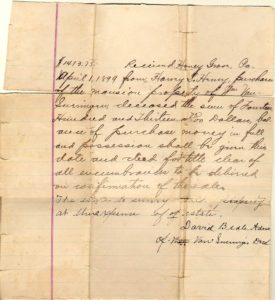 $1413.75 Received Honey Grove Pa.
April 1, 1899 from Harry S. Henry, purchaser
of the mansion property of Wm Van
deceased the sum of Fourteen
Hundred and Thirteen Dollars, bal
ance of purchase money in full
and possession shall be given this
date and deed for title clear of
all encumbrances to be delivered
on confirmation of the sale.
The
at the expense of estate.
David Beale Admr
Of Van Dec'd